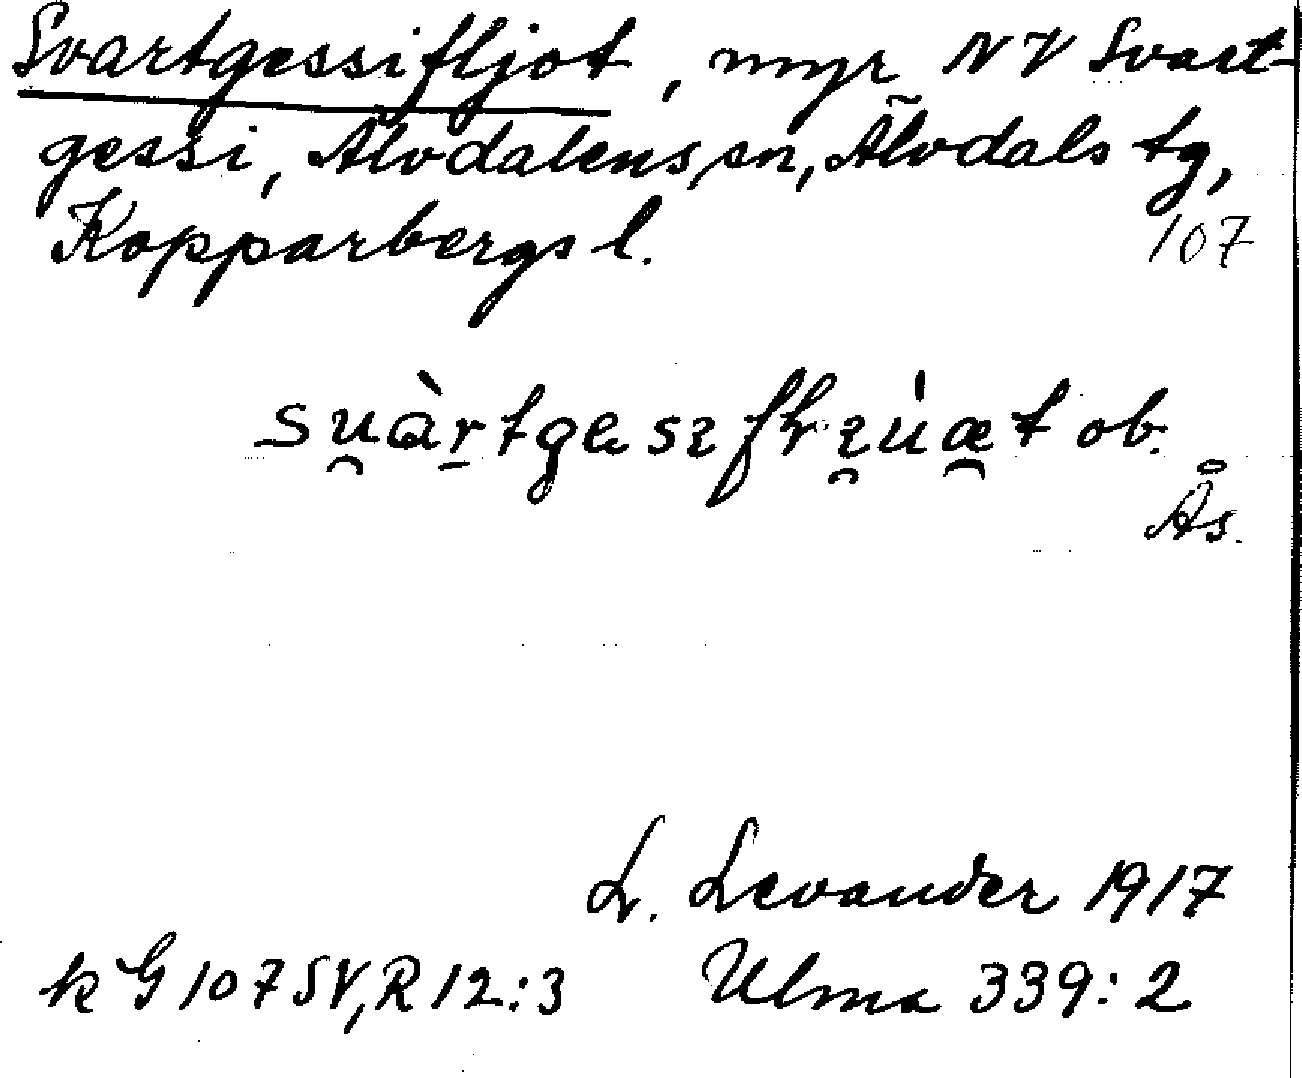 Svartgessifljot, myr NV Svart-
gessi, Älvdalens sn, Älvdals tg,
Kopparbergs l.
107
ob.
Ås.
L. Levander 1917
k G 107 SV, R 12:3 Ulma 339:2